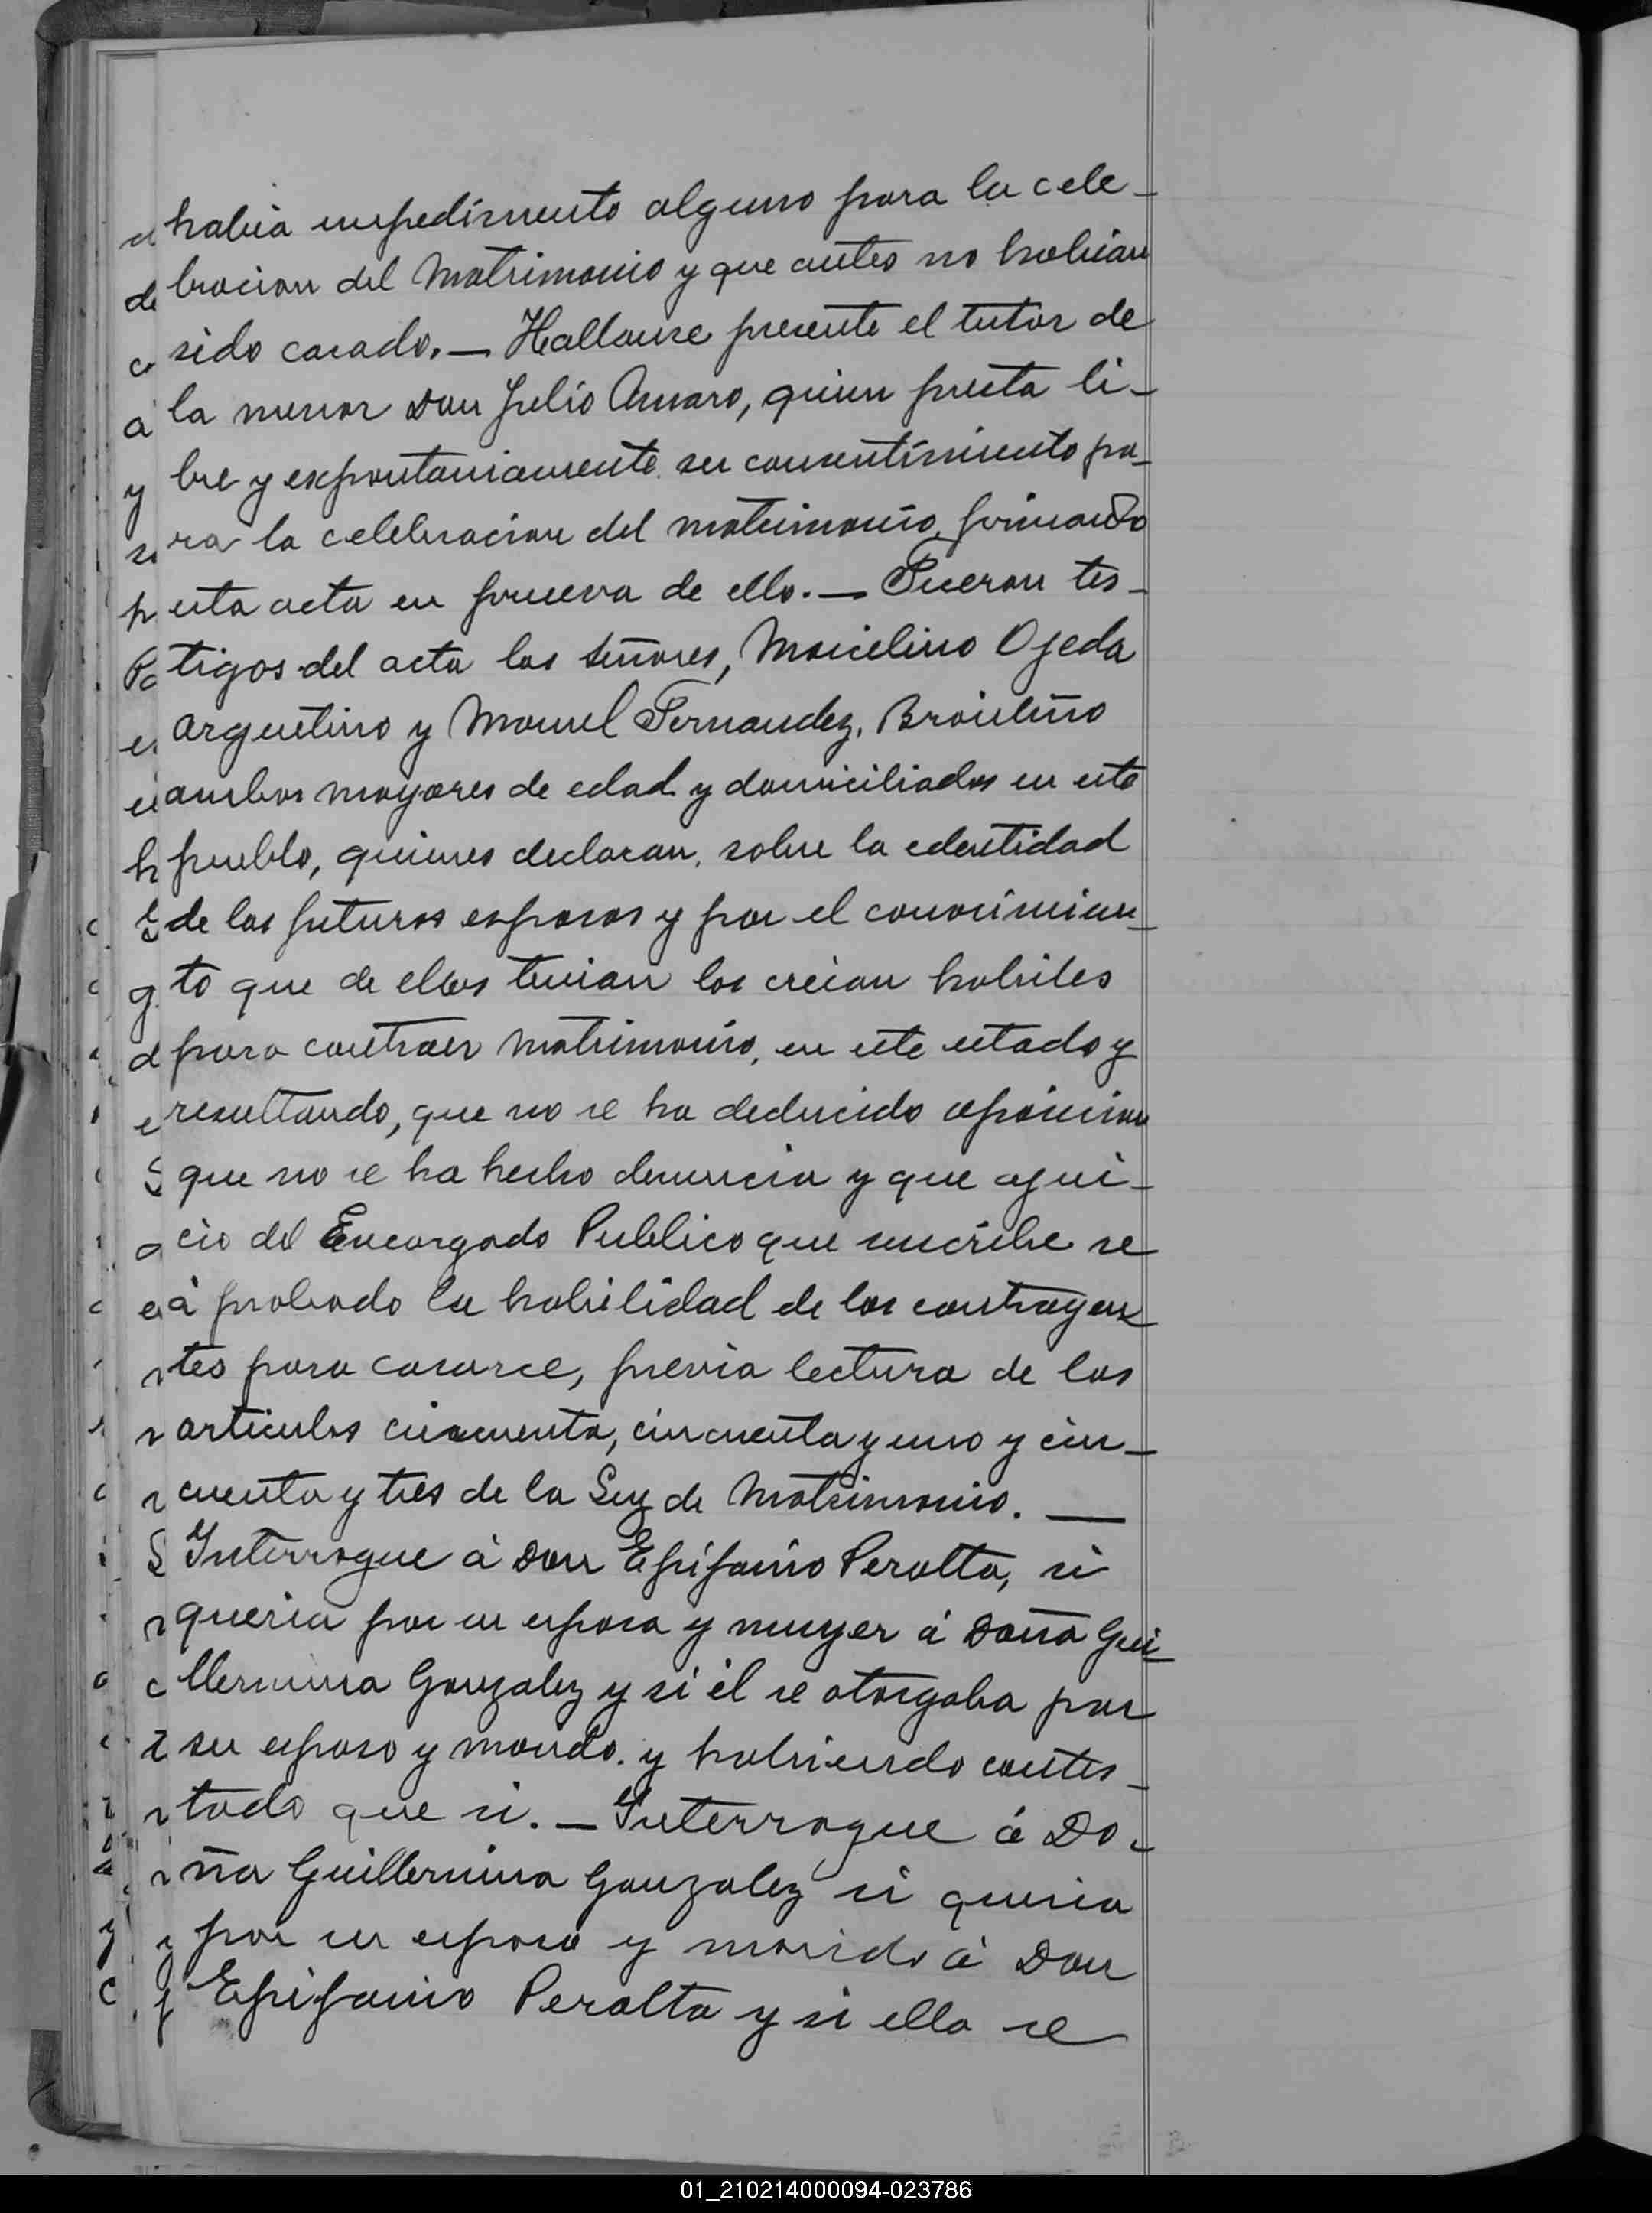 habia impedimento alguno para la cele-
bracion del Matrimonio y que antes no habian
sido casado. — Hallanse presente el tutor de
la menor Don Julio Amaro, quien presta li-
bre y expontaniamente su consentimiento pa-
ra la celebracion del matrimonio, firmando
esta acta en prueva de ello. — Fueron tes-
tigos del acta los señores, Marcelino Ojeda
argentino y Manuel Fernandez, Brasileño
ambos mayores de edad y domiciliados en este
pueblo, quienes declaran, sobre la edentidad
de los futuros esposos y por el conosimien-
to que de ellos tenian los creian habiles
para contraer matrimonio, en este estado y
resultando, que no se ha deducido oposicion
que no se ha hecho denuncia y que ajui-
cio del Encargado Publico que suscribe se
á probado la habilidad de los contrayen-
tes para casarce, previa lectura de los
articulos cincuenta, cincuenta y uno y cin-
cuenta y tres de la Ley de Matrimonio. —
Interrogue á Don Epifanio Peralta, si
queria por su esposa y muyer á Doña Gui-
llermina Gonzalez y si él se otorgaba por
su esposo y marido. y habiendo contes-
tado que si. — Interrogue á Do-
ña Guillermina Gonzalez si queria
por su esposo y marido á Don
Epifanio Peralta y si ella se
01_210214000094-023786